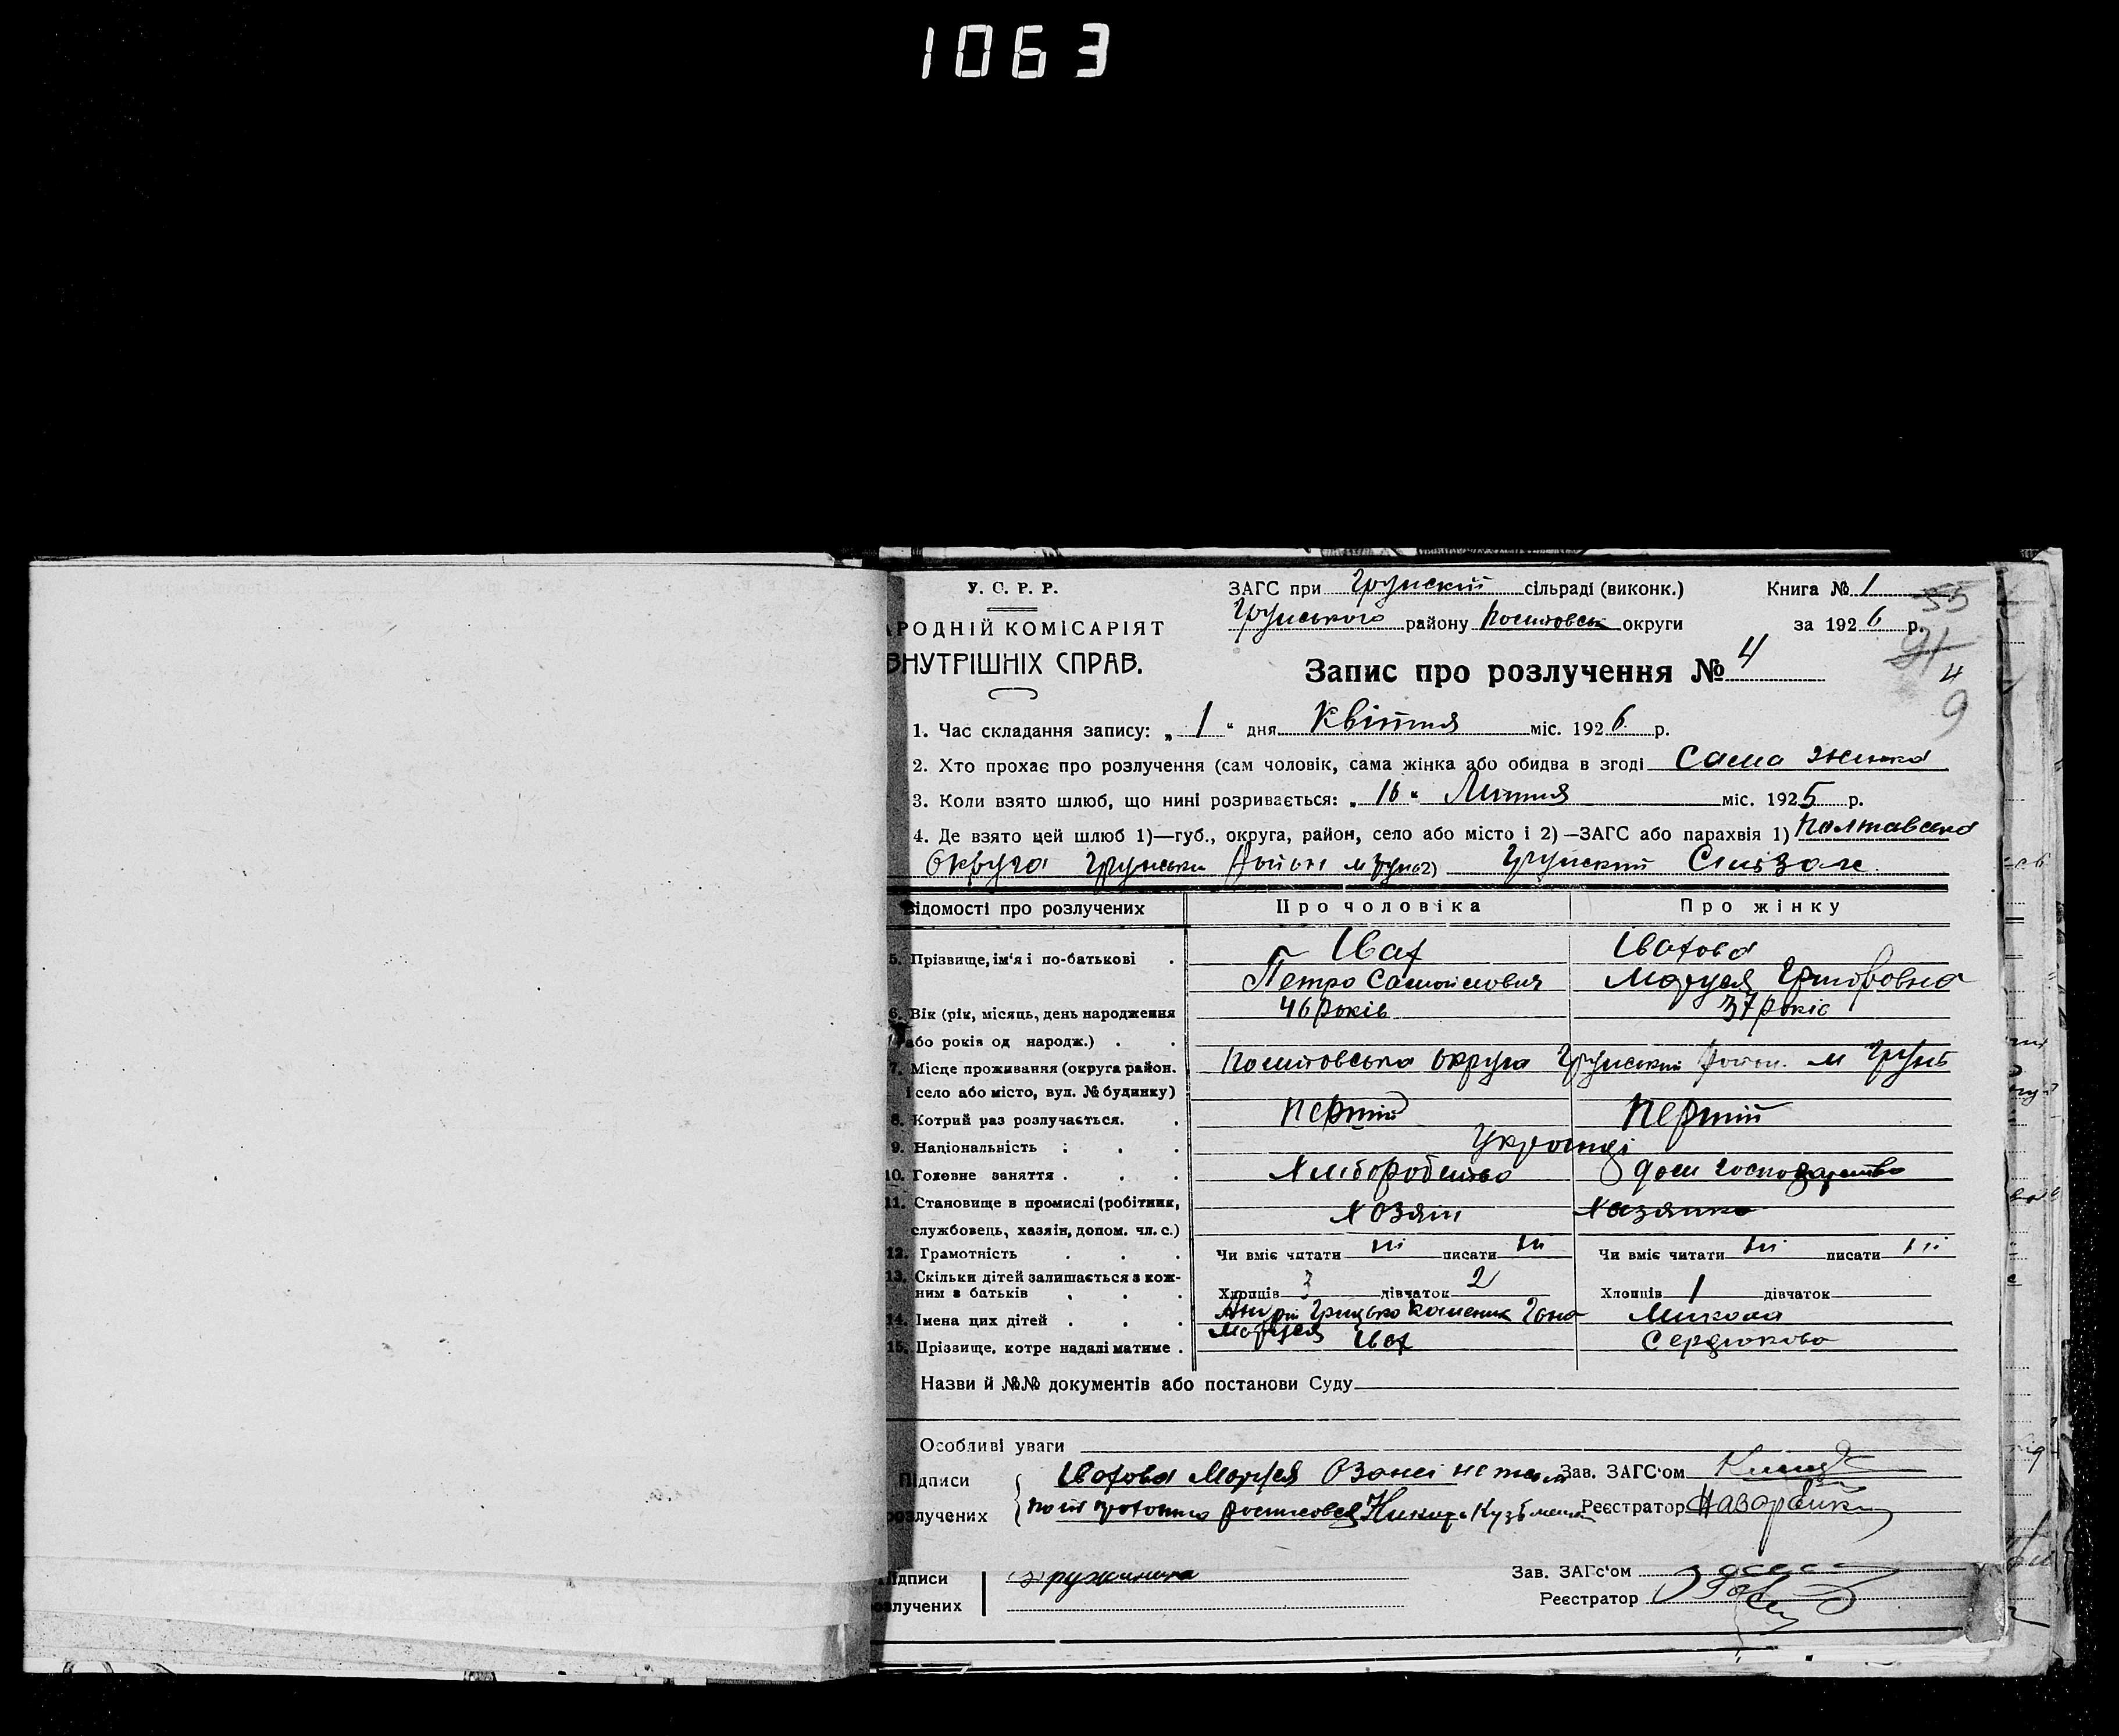 1063
У. С. Р. Р.
РОДНІЙ КОМІСАРІЯТ
ВНУТРІШНІХ СПРАВ.
ЗАГС при Грунскій сільраді (виконк.)
Грунського району округи
Книга № 1
за 1926 р.
55
4
9
Запис про розлучення № 4
1. Час складання запису: „ 1 “ дня Квітня міс. 1926 р.
2. Хто прохає про розлучення (сам чоловік, сама жінка або обидва в згоді Сама жинка
3. Коли взято шлюб, що нині розривається: „ 16 “ міс. 1925 р.
4. Де взято цей шлюб 1)—губ., округа, район, село або місто і 2)—ЗАГС або парахвія 1) Полтавська
округа Грунськи Район м 2) Грунский
Відомості про розлучених
Про чоловіка
Про жінку
5. Прізвище, ім'я і по-батькові .
Петро Самойлович
Маруся
6. Вік (рік, місяць, день народження
46 років
37 років
або років од народж.) . .
7. Місце проживання (округа район.
округа Грунський Район. м Грунь
і село або місто, вул. № будинку)
8. Котрий раз розлучається. .
першій
першій
9. Національність : . .
Українці
10. Головне заняття . . .
Хліборобство
дом господарство
11. Становище в промислі (робітник,
Хозяін
Хазяйка
службовець, хазяін, допом. чл. с.)
12. Грамотність . . .
Чи вміє читати ні писати ні
Чи вміє читати ні писати ні
13. Скільки дітей залишається з кож-
ним з батьків . . .
Хлопців 3 дівчаток 2
Хлопців 1 дівчаток
14. Імена цих дітей . . .
Грицько
Микола
Маруся
15. Прізвище, котре надалі матиме .
Сердюкова
Назви й №№ документів або постанови Суду
Особливі уваги
Підписи
розлучених
Маруся
Кузьменко
Зав. ЗАГС'ом
Реєстратор Назаренко
Підписи
розлучених
Зав. ЗАГс'ом
Реєстратор